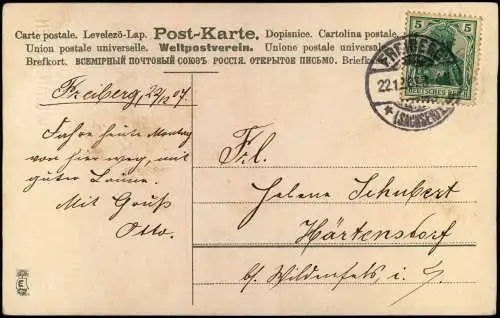 Carte postale. Levelező-Lap. Post-Karte. Dopisnice. Cartolina postale.
Union postale universelle. Weltpostverein. Unione postale universale.
Brefkort. ВСЕМІРНЫЙ ПОЧТОВЫЙ СОЮЗЪ. РОССІЯ. ОТКРЫТОЕ ПИСЬМО. Briefkaart.
5 5
DEUTSCHES REICH
FREIBERG
22.12
* (SACHSEN)
Freiberg, 22/12 07.
Fahre heute Montag
von hier weg, mit
guter Laune.
Mit Gruß
Otto.
Frl.
Helene Schubert
Härtensdorf
b/ Wildenfels, i. S.